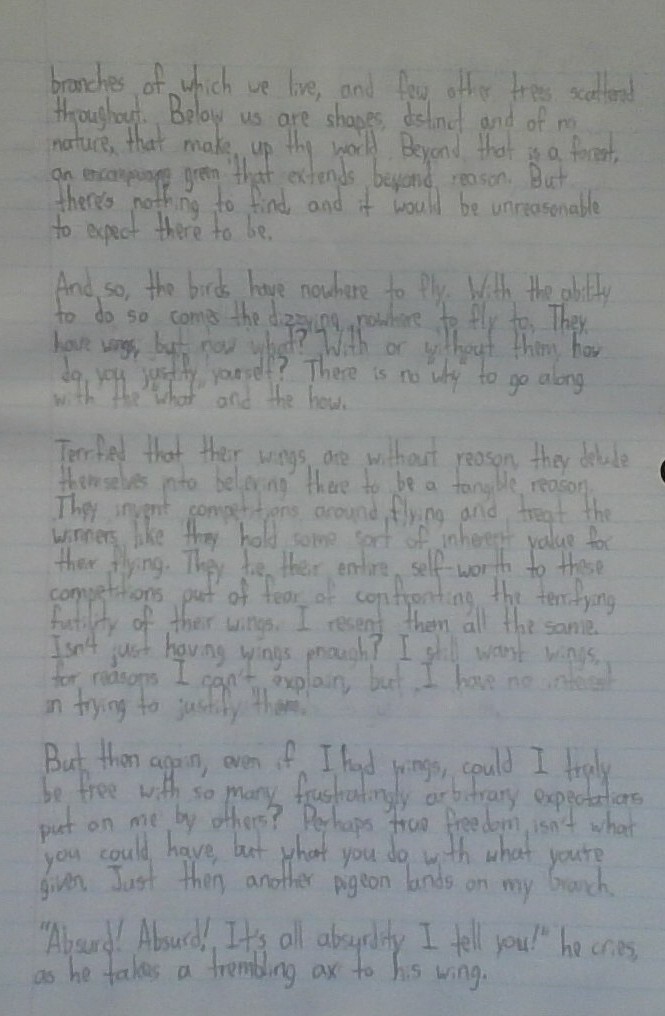 branches of which we live, and few other trees scattered
throughout. Below us are shapes, distinct and of no
nature, that make up the world. Beyond that is a forest,
an encompassing green that extends beyond reason. But
there's nothing to find, and it would be unreasonable
to expect there to be.
And so, the birds have nowhere to fly. With the ability
to do so comes the dizzying nowhere to fly to. They
have wings, but now what? With or without them, how
do you justify yourself? There is no "why" to go along
with the "what" and the how.
Terrified that their wings are without reason, they delude
themselves into believing there to be a tangible reason.
They invent competitions around flying and treat the
winners like they hold some sort of inherent value for
their flying. They tie their entire self-worth to these
competitions out of fear of confronting the terrifying
futility of their wings. I resent them all the same.
Isn't just having wings enough? I still want wings,
for reasons I can't explain, but I have no interest
in trying to justify them.
But then again, even if I had wings, could I truly
be free with so many frustratingly arbitrary expectations
put on me by others? Perhaps true freedom isn't what
you could have, but what you do with what you're
given. Just then, another pigeon lands on my branch.
"Absurd! Absurd! It's all absurdity I tell you!" he cries,
as he takes a trembling ax to his wing.